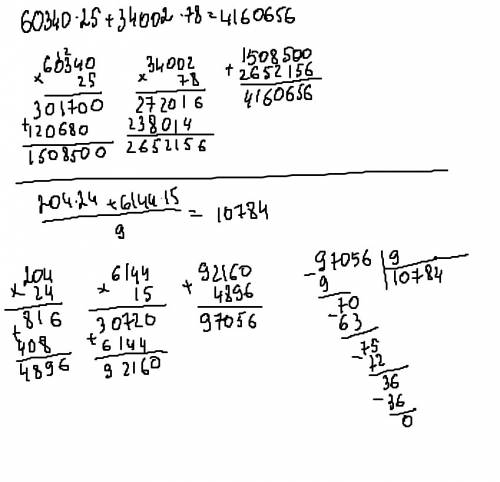 60340·25+34002·78=4160656
12
60340
×
25
301700
+
120680
1508500
34002
×
78
272016
238014
2652156
1508500
+
2652156
4160656
204·24+6144·15
9
= 10784
204
×
24
816
+
408
4896
6144
×
15
30720
+
6144
92160
92160
+
4896
97056
97056 9
-
9 10784
70
-
63
75
-
72
36
-
36
0